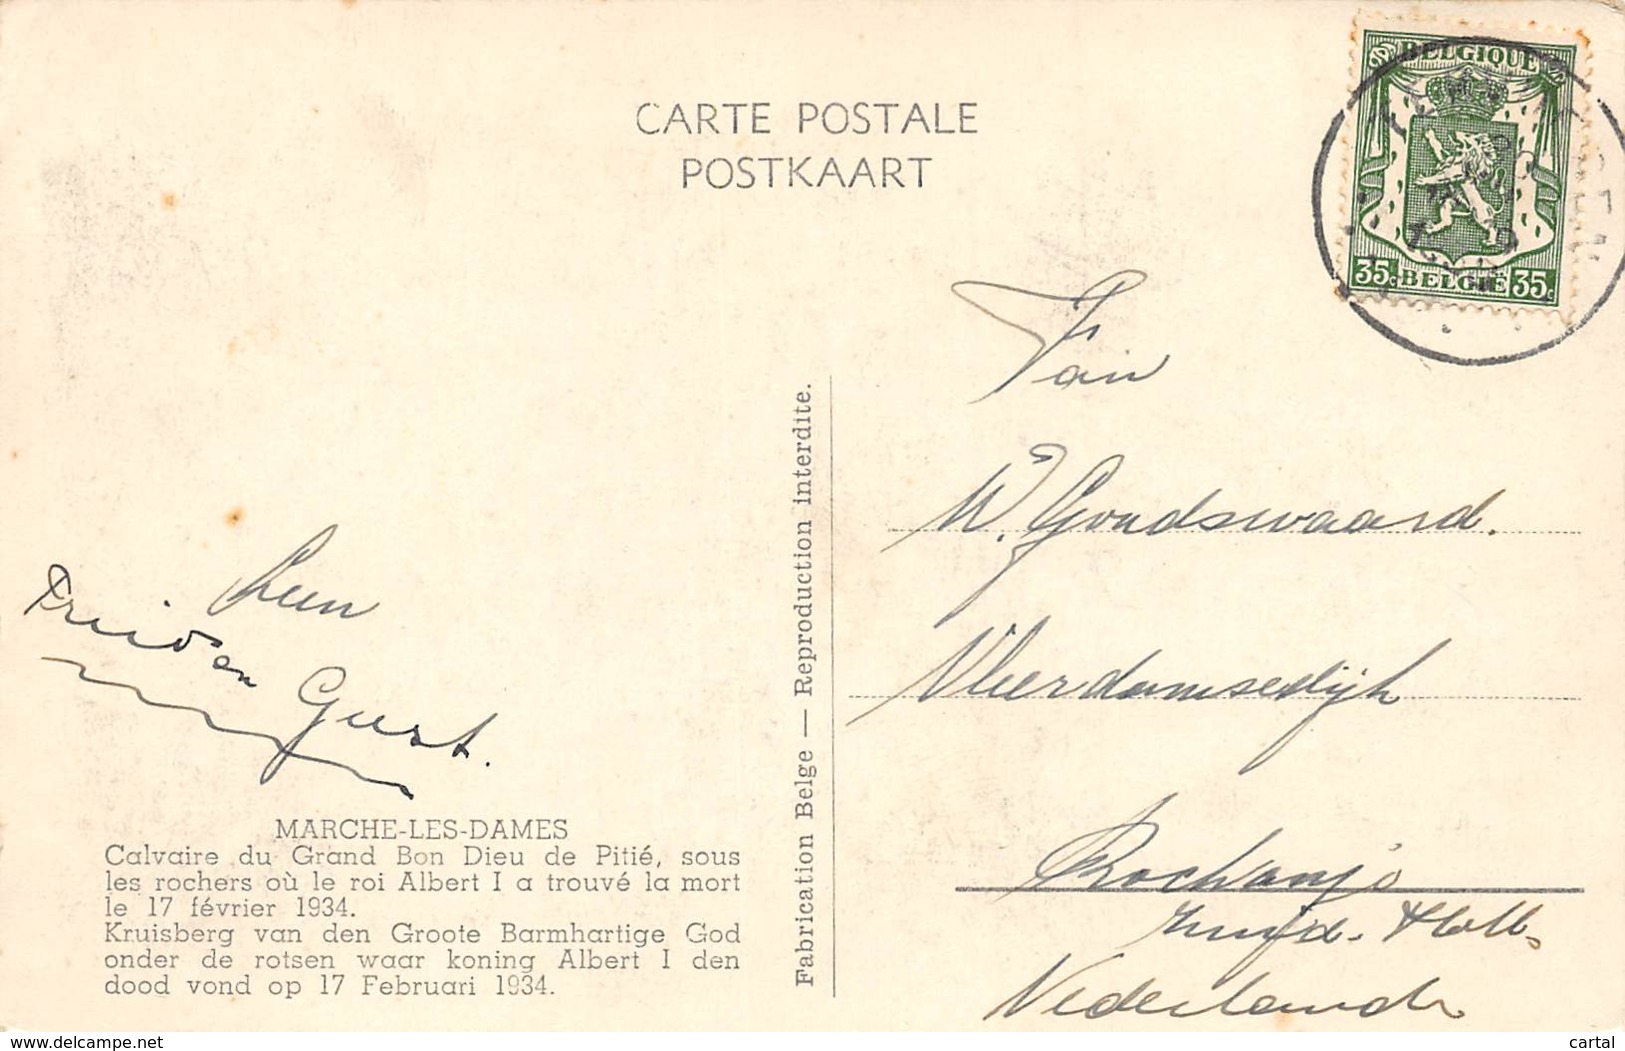 CARTE POSTALE
POSTKAART
BELGIQUE
35c BELGIË 35c
Fam
W. Goudswaard.
Vleerdamsedijk
Rockanje
Zuid. Holl.
Nederland
Leen
Truida en
Gust.
MARCHE-LES-DAMES
Calvaire du Grand Bon Dieu de Pitié, sous
les rochers où le roi Albert I a trouvé la mort
le 17 février 1934.
Kruisberg van den Groote Barmhartige God
onder de rotsen waar koning Albert I den
dood vond op 17 Februari 1934.
Fabrication Belge — Reproduction interdite.
www.delcampe.net
cartal